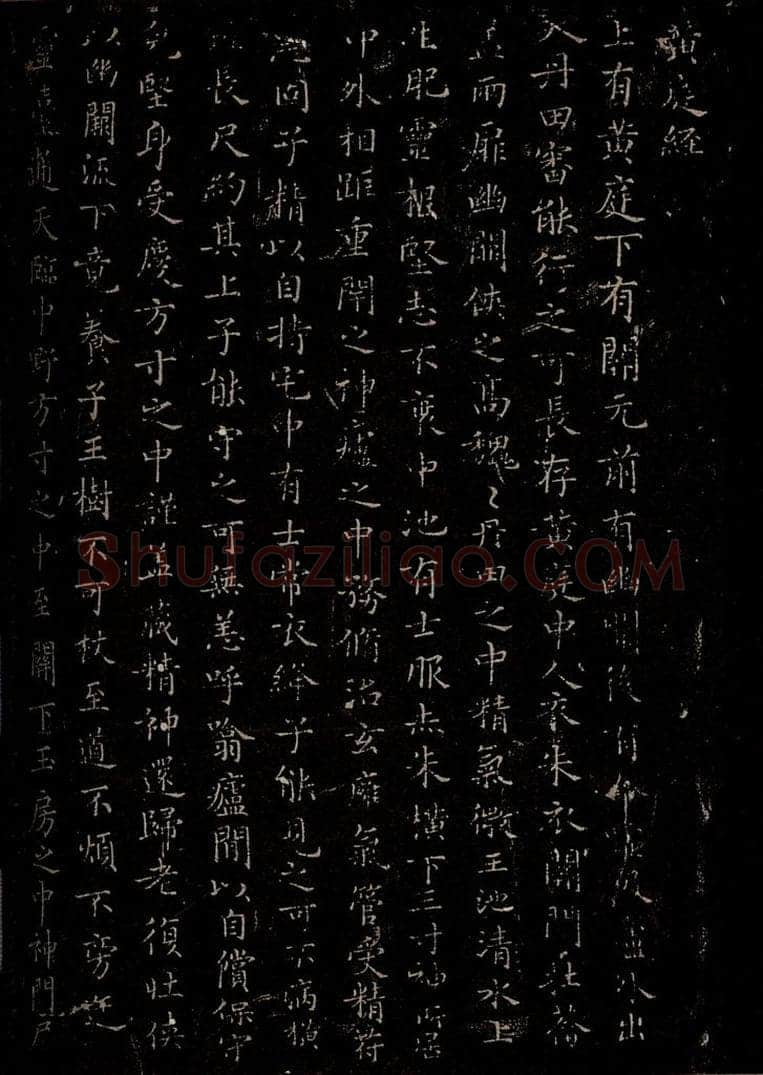 黄庭経
上有黄庭下有關元前有幽闕後有命噓吸廬外出
入丹田審能行之可長存黄庭中人衣朱衣關門壯籥
蓋兩扉幽闕俠之高魏〻丹田之中精氣微玉池清水上
生肥靈根堅志不衰中池有士服赤朱橫下三寸神所居
中外相距重閉之神廬之中務脩治玄廱氣管受精符
急固子精以自持宅中有士常衣絳子能見之可不病橫
理長尺約其上子能守之可無恙呼噏廬間以自償保守
完堅身受慶方寸之中謹蓋藏精神還歸老復壯俠
以幽闕流下竟養子玉樹不可杖至道不煩不旁迕
靈臺通天臨中野方寸之中至關下玉房之中神門戶
Shufaziliao.COM